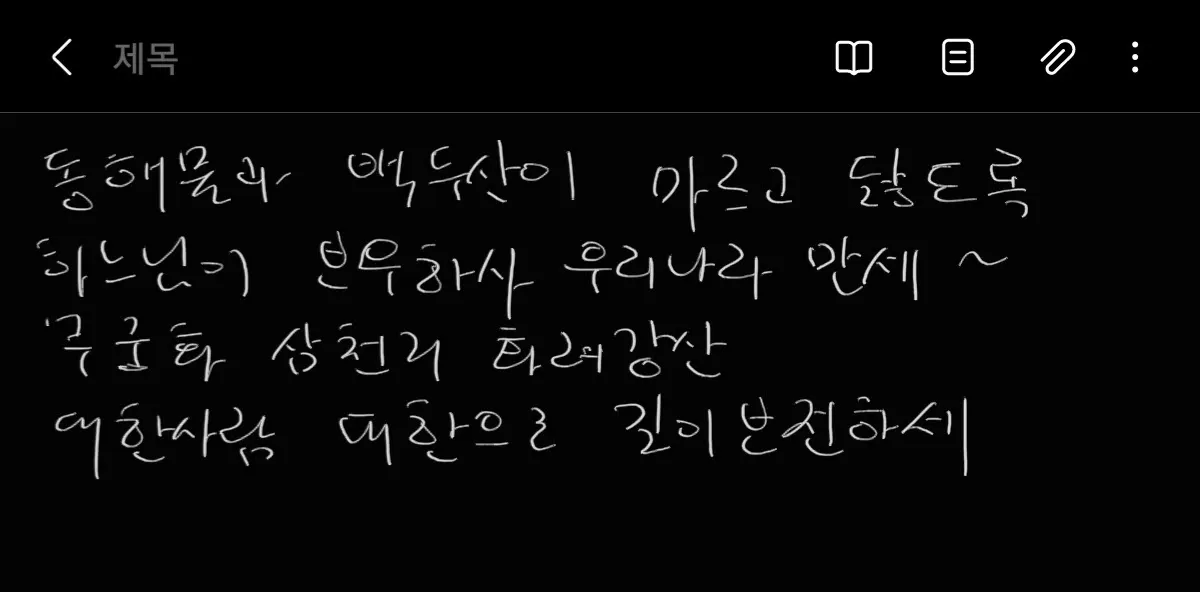 제목
동해물과 백두산이 마르고 닳도록
하느님이 보우하사 우리나라 만세 ~
무궁화 삼천리 화려강산
대한사람 대한으로 길이 보전하세